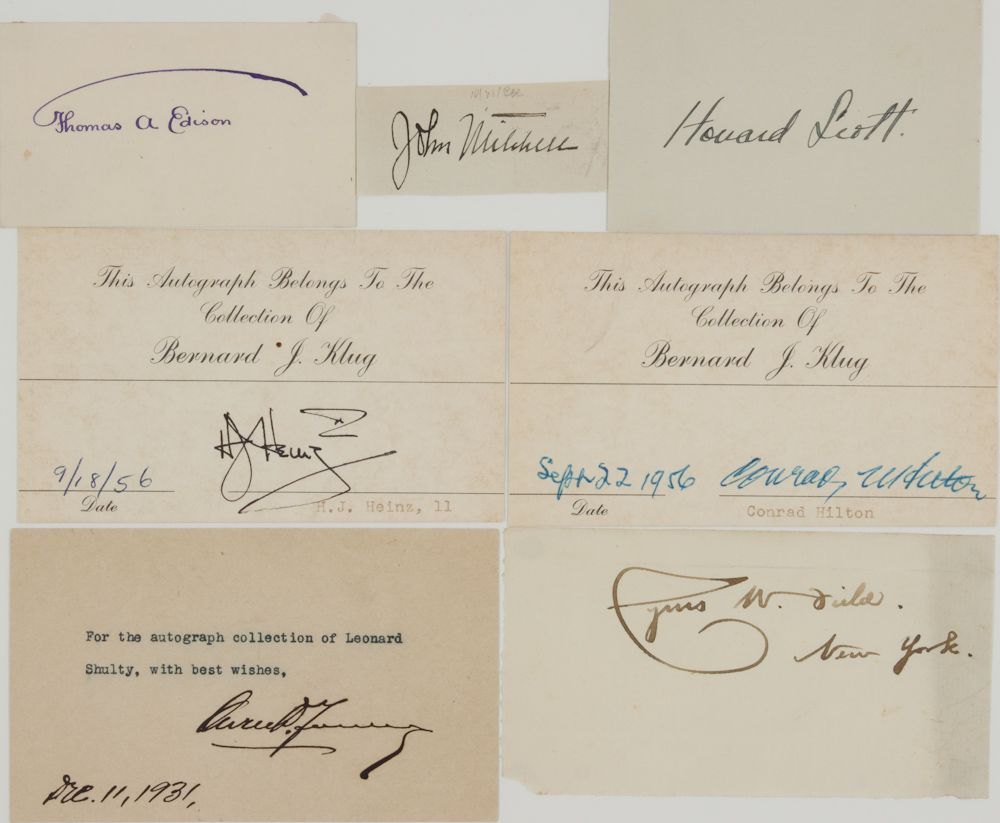 Thomas A Edison
John Mitchell
Howard Scott.
This Autograph Belongs To The
Collection Of
Bernard J. Klug
9/18/56
HJ Heinz
Date
H.J. Heinz, 11
This Autograph Belongs To The
Collection Of
Bernard J. Klug
Sept 22 1956
Conrad N Hilton
Date
Conrad Hilton
For the autograph collection of Leonard
Shulty, with best wishes,
Owen D. Young
Dec. 11, 1931,
Cyrus W. Field.
New York.